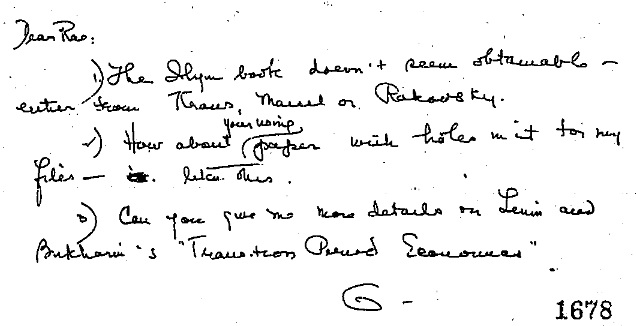 Dear Rae:
1) The Ilyin book doesn't seem obtainable –
either from Kraus, Maurel or Rakovsky.
2) How about your using paper with holes in it for my
files – . like this.
3) Can you give me more details on Lenin and
Bukharin's "Transition Period Economics".
G –
1678